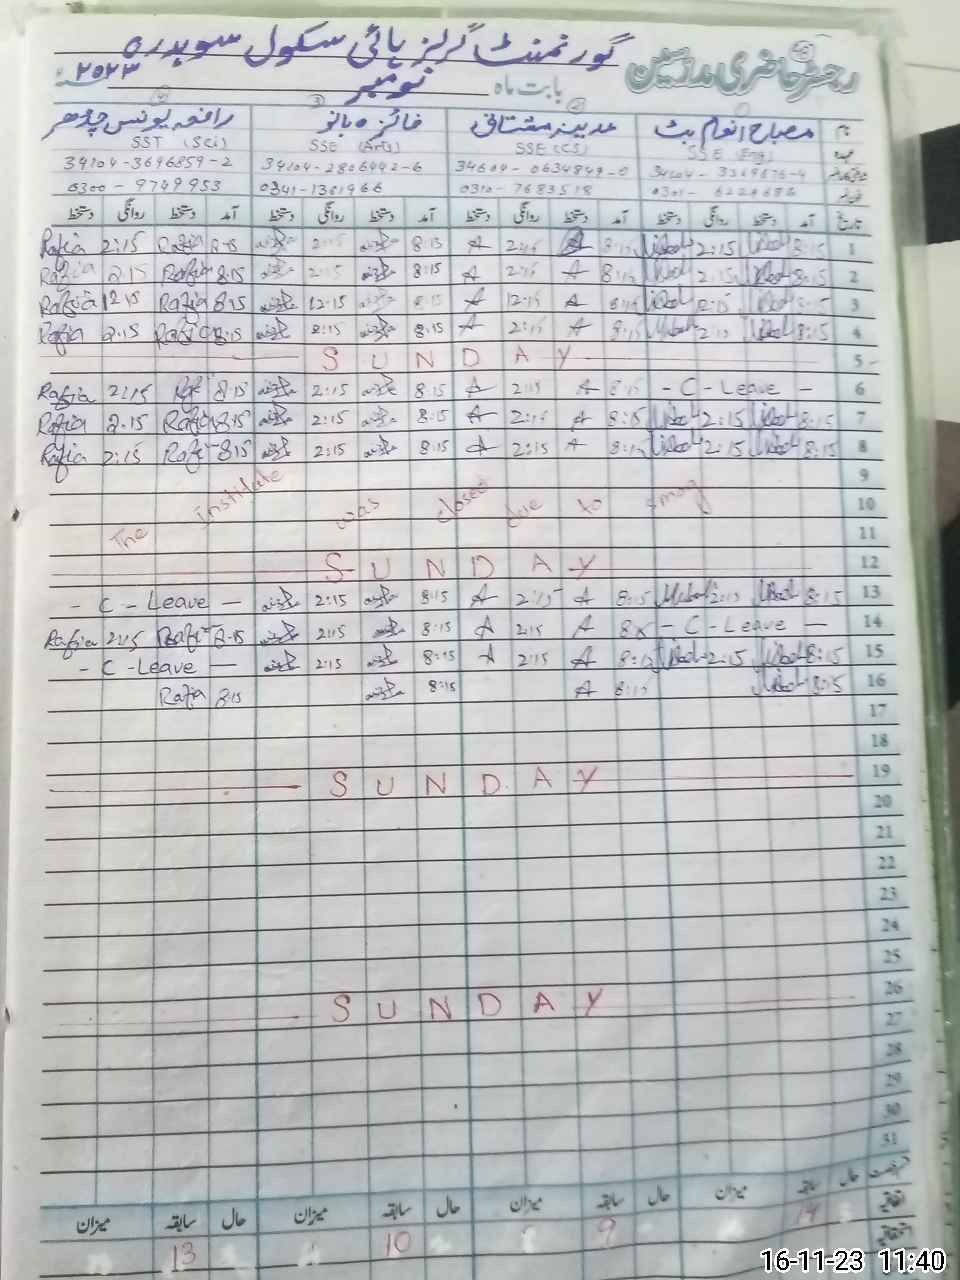 رجسٹر حاضری مدرسین گورنمنٹ گرلز ہائی سکول سوہدرہ
بابت ماہ نومبر ۲۰۲۳
نام مصباح انعام بٹ مدینہ مشتاق فائزہ بانو رافعہ یونس چٹھر
عہدہ SSE (Eng) SSE (CS) SSE (Arts) SST (Sci)
34104 - 3319676-4 34604 - 0634849-0 34104-2806442-6 34104-3696859-2
0301- 6220686 0310-7683518 0341-1361966 0300 - 9749953
تاریخ آمد دستخط روانگی دستخط آمد دستخط روانگی دستخط آمد دستخط روانگی دستخط آمد دستخط روانگی دستخط
Rafia 2:15 Rafia 8:15 2:15 8:15 A 2:15 8:15 2:15 8:15 1
Rafia 2:15 Rafia 8:15 2:15 8:15 A 2:15 A 8:15 2:15 8:15 2
Rafia 12:15 Rafia 8:15 12:15 8:15 A 12:15 A 8:15 12:15 8:15 3
Rafia 2:15 Rafia 8:15 2:15 8:15 A 2:15 A 8:15 2:15 8:15 4
SUNDAY 5
Rafia 2:15 Raf 8:15 2:15 8:15 A 2:15 A 8:15 - C - Leave - 6
Rafia 2:15 Rafia 8:15 2:15 8:15 A 2:15 A 8:15 2:15 8:15 7
Rafia 2:15 Rafi 8:15 2:15 8:15 A 2:15 A 8:15 2:15 8:15 8
9
The Institute was closed due to smog 10
11
SUNDAY 12
- C - Leave - 2:15 8:15 A 2:15 A 8:15 2:15 8:15 13
Rafia 2:15 Rafi 8:15 2:15 8:15 A 2:15 A - C - Leave - 14
- C - Leave - 2:15 8:15 A 2:15 A 8:15 2:15 8:15 15
Rafia 8:15 8:15 A 8:15 8:15 16
17
18
SUNDAY 19
20
21
22
23
24
25
SUNDAY 26
27
28
29
30
31
حال سابقہ میزان حال سابقہ میزان حال سابقہ میزان حال سابقہ میزان
اتفاقیہ 14 9 10 13
16-11-23 11:40